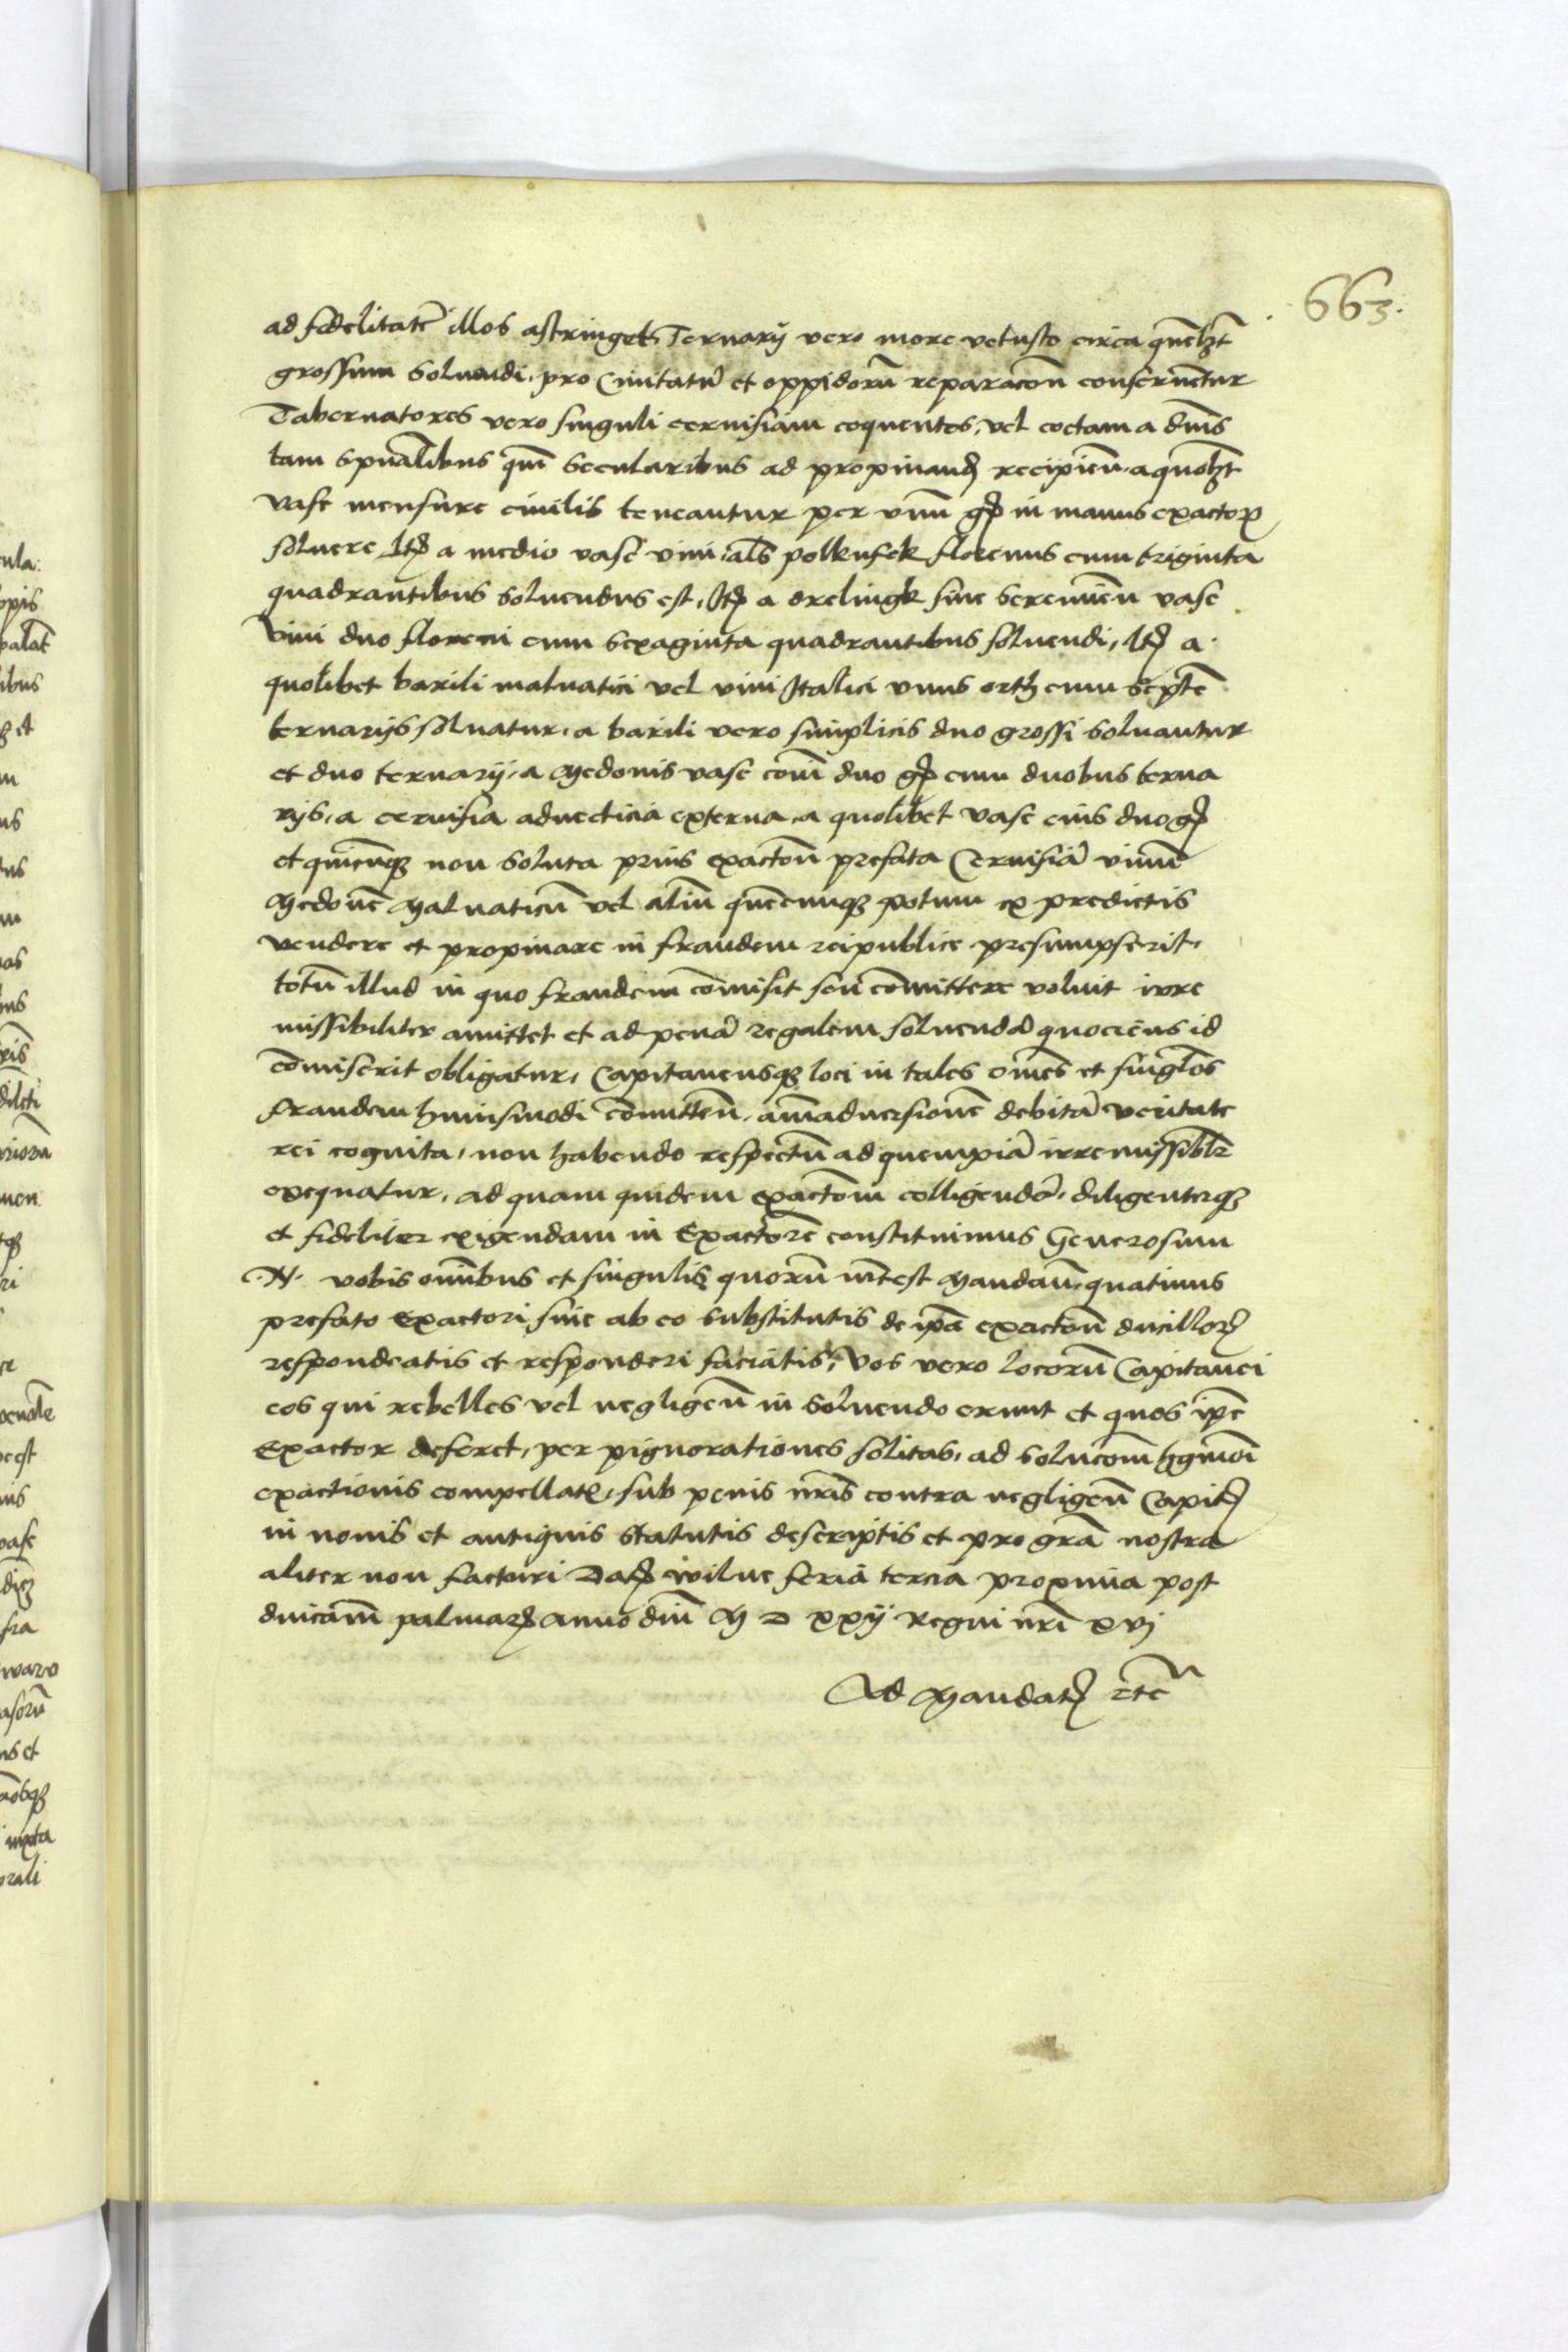 663.
ad fidelitatē illos astringet, Ternarij vero more vetusto circa quēlꝫt
grossum soluendi, pro Ciuitatū et oppidorū reparacōn conseruētur
Tabernatores vero singuli ceruisiam coquentes, vel coctam a dn̄is
tam spūalibus qm̄ secularibus ad propinand recipien̄, a quolꝫt
vase mensure ciuilis teneantur per vnū gꝛ in manus exactoꝝ
soluere Itꝫ a medio vase vini, als̄ polkufek florenus cum triginta
quadrantibus soluendus est, Itꝫ a drelingk siue seremien̄ vase
vini duo floreni cum sexaginta quadrantibus soluendi, Itꝫ a
quolibet barili maluatici vel vini Italici vnus ortħ cum septē
ternarijs soluatur, a barili vero simplicis duo grossi soluantur
et duo ternarij, a Medonis vase com̄ duo gꝛ cum duobus terna
rijs, a ceruisia aduecticia externa, a quolibet vase eius duo gꝛ
et quicūqꝫ non soluta prius exactōn prefata Ceruisiā vinū
Medonē Maluaticū vel aliū quēcumqꝫ potum ex predictis
vendere et propinare in fraudem reipublice presumpserit,
totū illud in quo fraudem cōmisit seu cōmittere voluit irre
missibiliter amittet et ad penā regalem soluendā quociēns id
cōmiserit obligatur, Capitaneusqꝫ loci in tales om̄es et singlos̄
fraudem huiusmodi cōmitten̄, aīmaduersionē debitā veritate
rei cognita, non habendo respectū ad quempiā irremissiblr̄
exequatur, ad quam quidem exactōm colligendā, diligenterqꝫ
et fideliter exigendam in Exactorē constituimus Generosum
.N. vobis omībus et singulis quorū int̄est Mandam̄, quatinus
prefato Exactori siue ab eo substitutis de ipā exactōn ducilloꝝ
respondeatis et responderi faciatis, Vos vero locorū Capitanei
eos qui rebelles vel negligen̄ in soluendo erunt et quos ipē
Exactor deferet, per pignorationes solitas, ad solucōm hꝫmōi
exactionis compellatꝭ, sub penis nr̄is contra negligen̄ Capitꝫ
in nouis et antiquis statutis descriptis et pro grā nostra
aliter non facturi Datꝫ wilne feria tercia proxima post
dnicam̄ palmaꝝ anno dnī M D xxij Regni nrī xvj
Ad Mandatꝫ etc̄